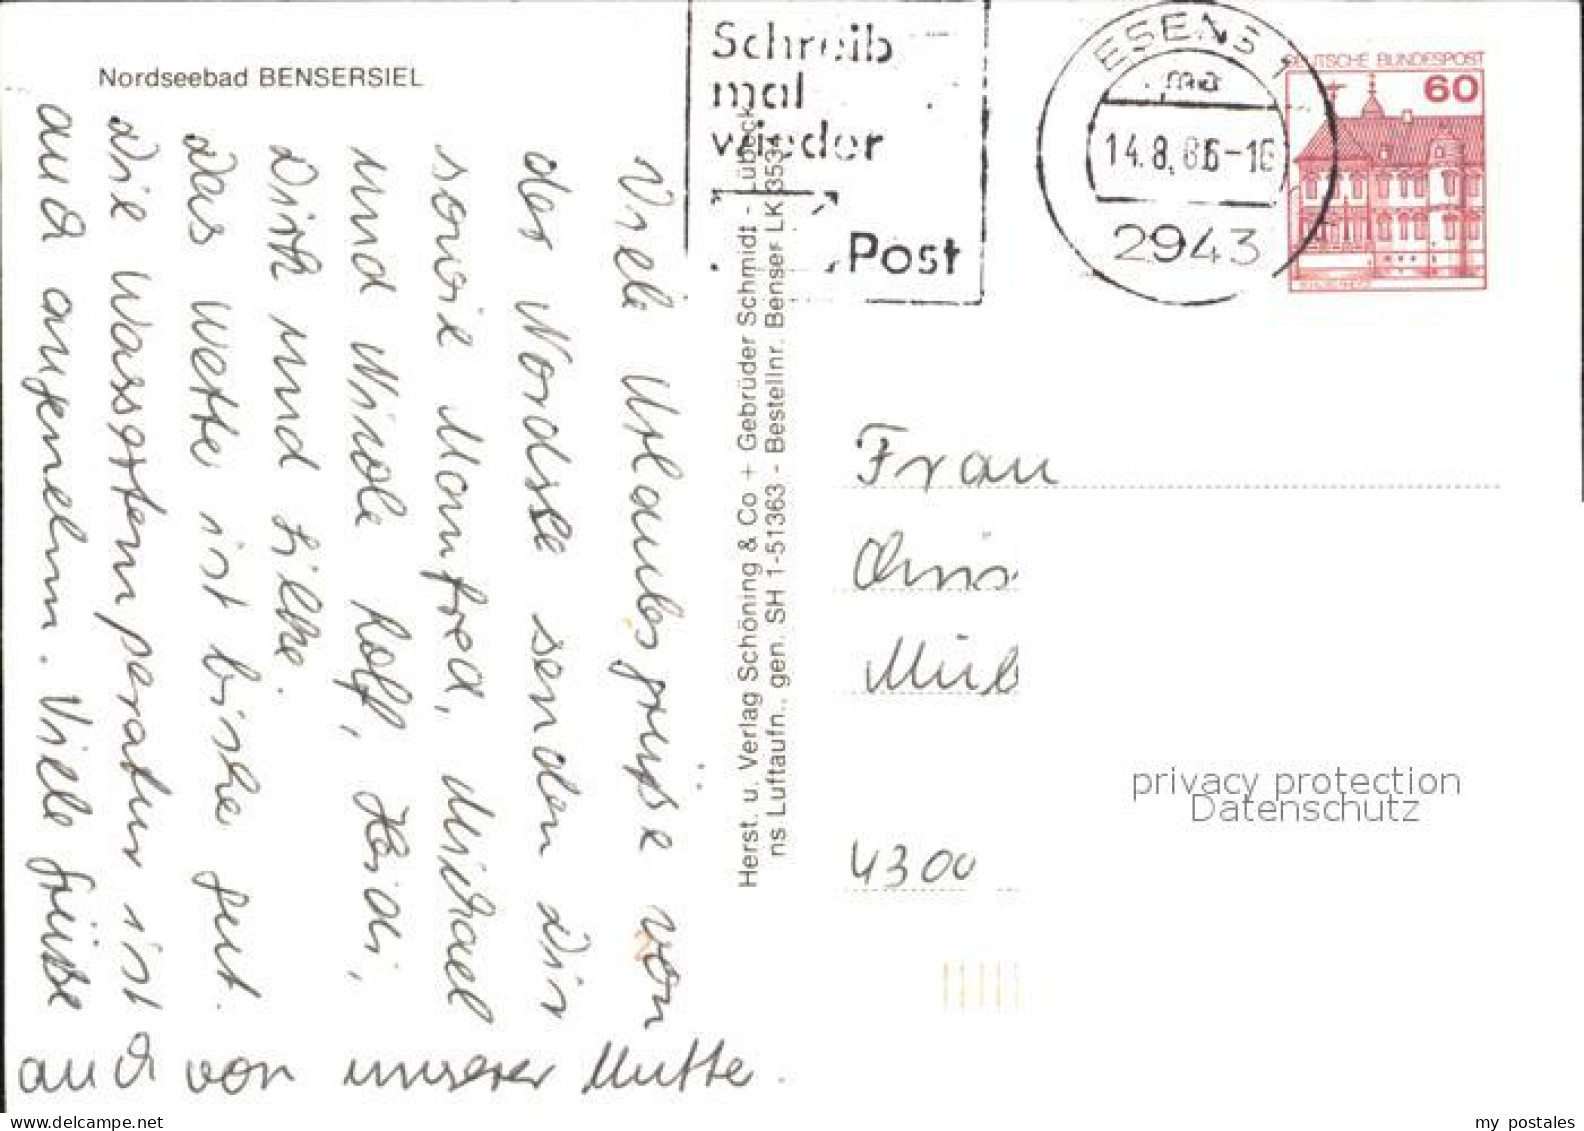 Nordseebad BENSERSIEL
Schreib
mal
wieder
Post
ESENS 1
ma
14.8.86-16
2943
DEUTSCHE BUNDESPOST
60
Viele Urlaubsgrüße von
der Nordsee senden Dir
sowie Manfred, Michael
und Nicole Rolf, Heidi,
Dirk und Silke.
Das Wetter ist bisher gut.
Die Wassertemperatur ist
auch angenehm. Viele Grüße
auch von unserer Mutter.
Herst. u. Verlag Schöning & Co + Gebrüder Schmidt - Lübeck
ns Luftaufn., gen. SH 1-51363 - Bestellnr. Benser LK 3534
Frau
4300
privacy protection
Datenschutz
my postales